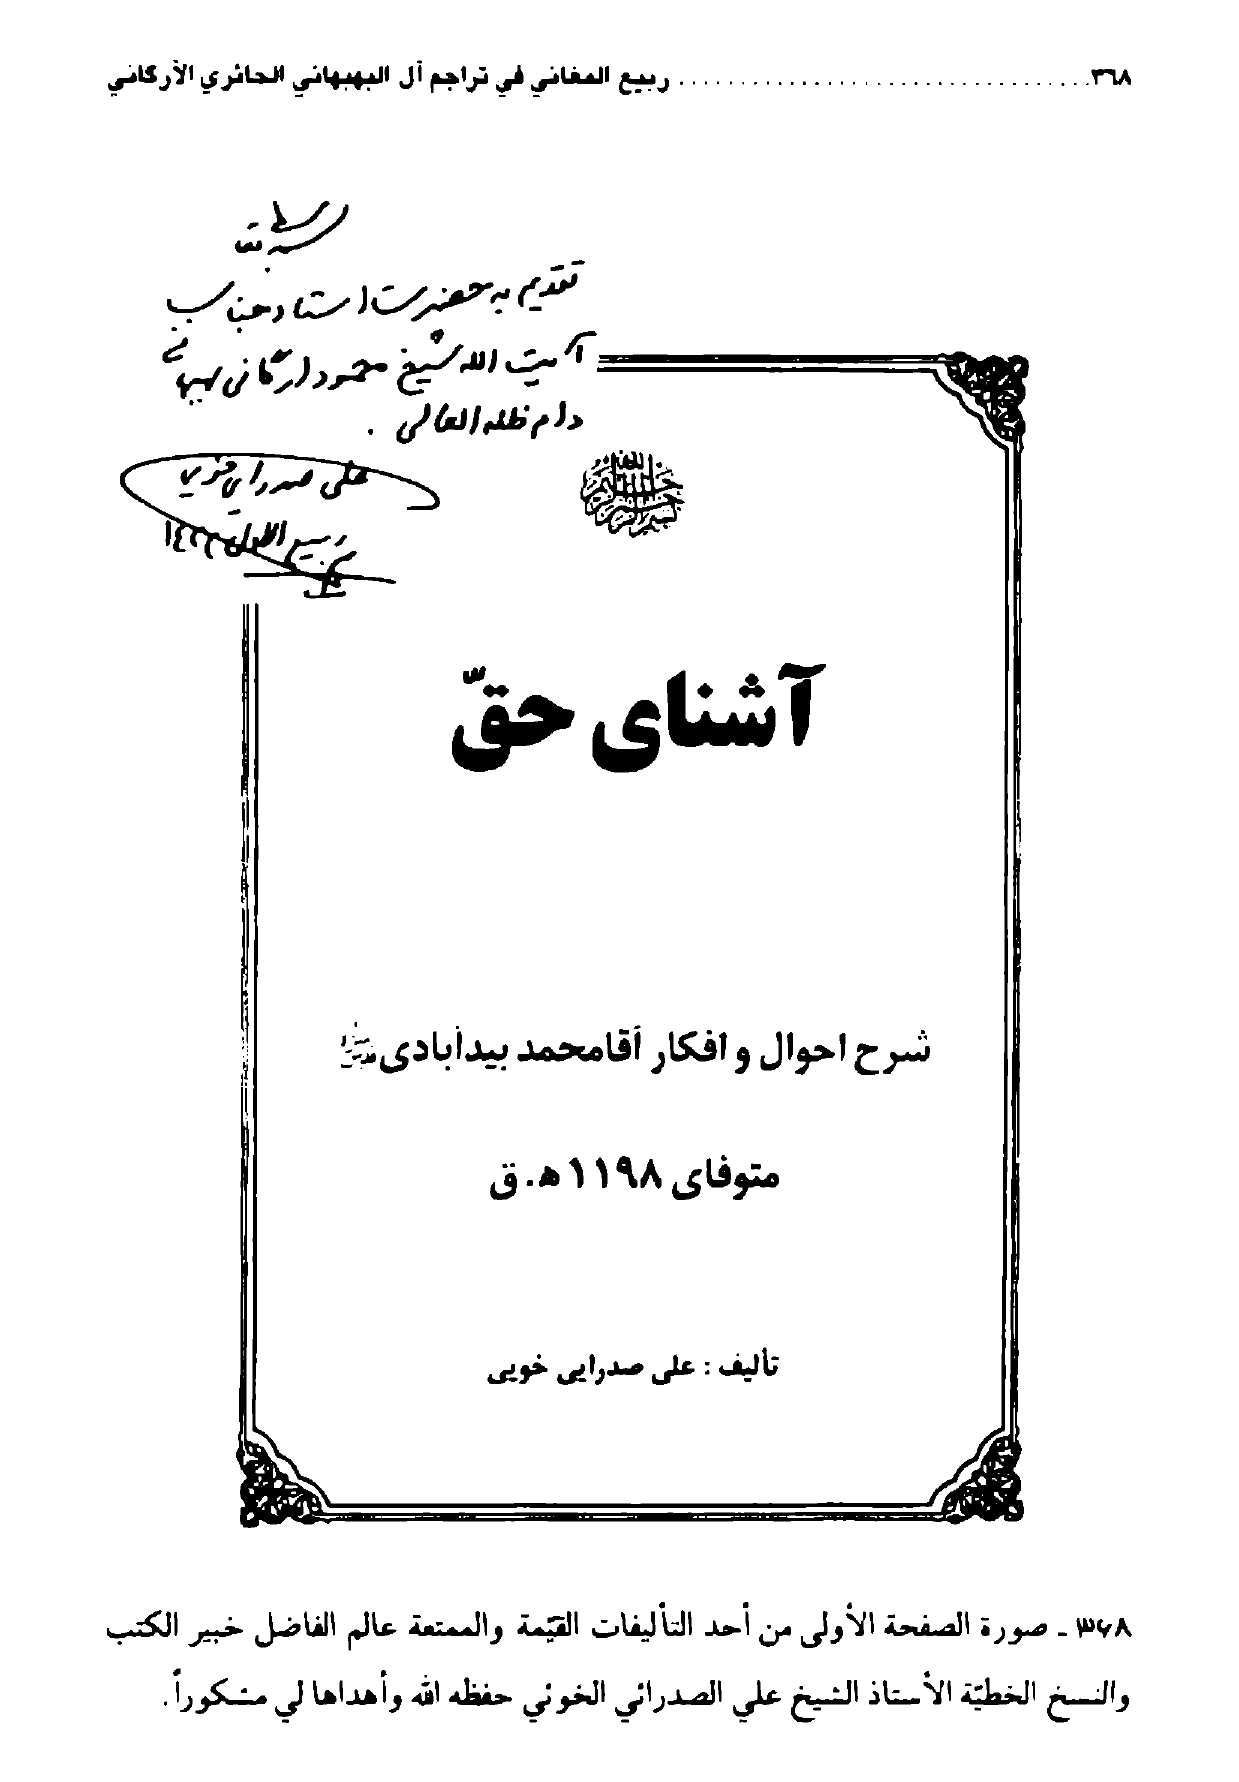 ٣٦٨ ................................ ربيع المغاني في تراجم آل البهبهاني الحائري الأركاني
بسمه تعالی
تقدیم به حضرت استاد جناب
آیت الله شیخ محمود ارگانی بهبهانی
دام ظله العالی .
علی صدرایی خویی
ربیع الاول
آشنای حقّ
شرح احوال و افکار آقامحمد بیدآبادی
متوفای ۱۱۹۸ ه‍. ق
تألیف : علی صدرایی خویی
٣٦٨ ـ صورة الصفحة الأولى من أحد التأليفات القيّمة والممتعة عالم الفاضل خبير الكتب
والنسخ الخطيّة الأستاذ الشيخ علي الصدرائي الخوئي حفظه الله وأهداها لي مشكوراً.